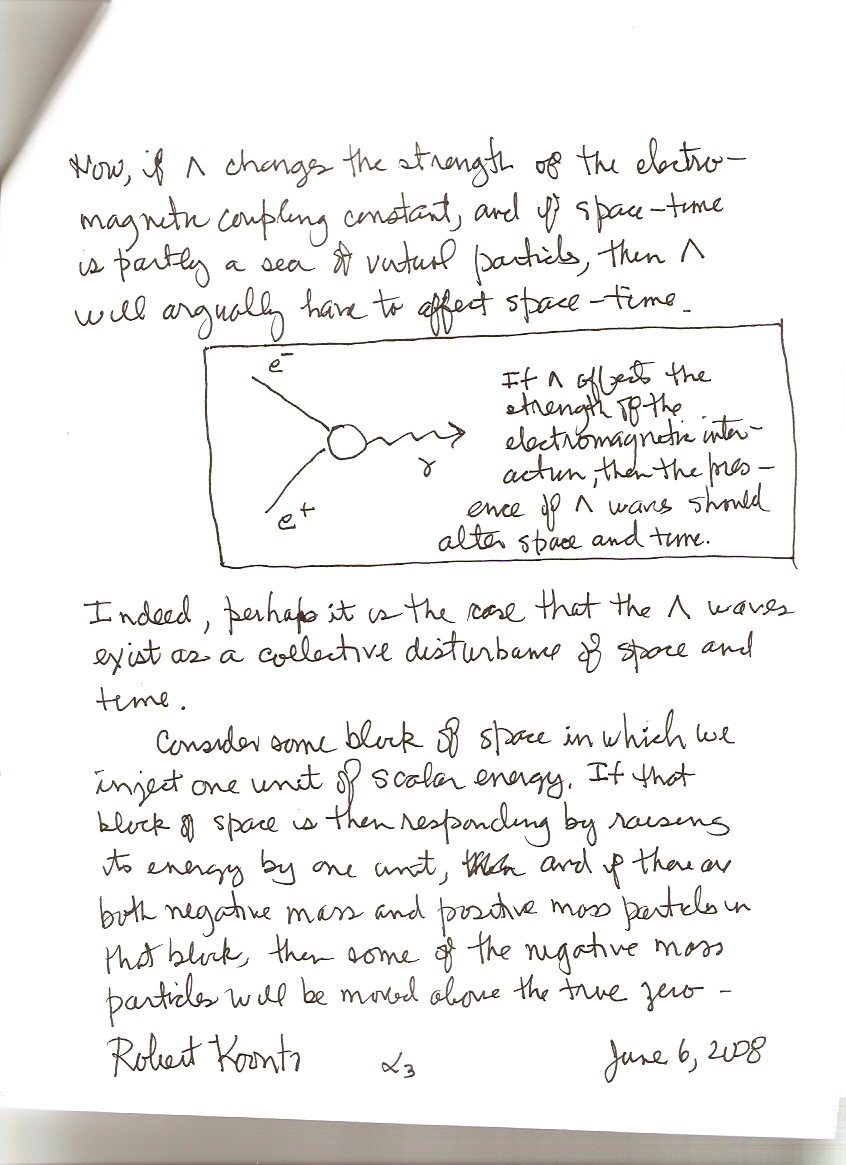 Now, if Λ changes the strength of the electro-
magnetic coupling constant, and if space-time
is partly a sea of virtual particles, then Λ
will argually have to affect space-time.
e⁻
γ
e⁺
If Λ affects the
strength of the
electromagnetic inter-
action, then the pres-
ence of Λ waves should
alter space and time.
Indeed, perhaps it is the case that the Λ waves
exist as a collective disturbance of space and
time.
Consider some block of space in which we
inject one unit of scalar energy. If that
block of space is then responding by raising
its energy by one unit, and if there are
both negative mass and positive mass particles in
that block, then some of the negative mass
particles will be moved above the true zero-
Robert Koontz
α3
June 6, 2008